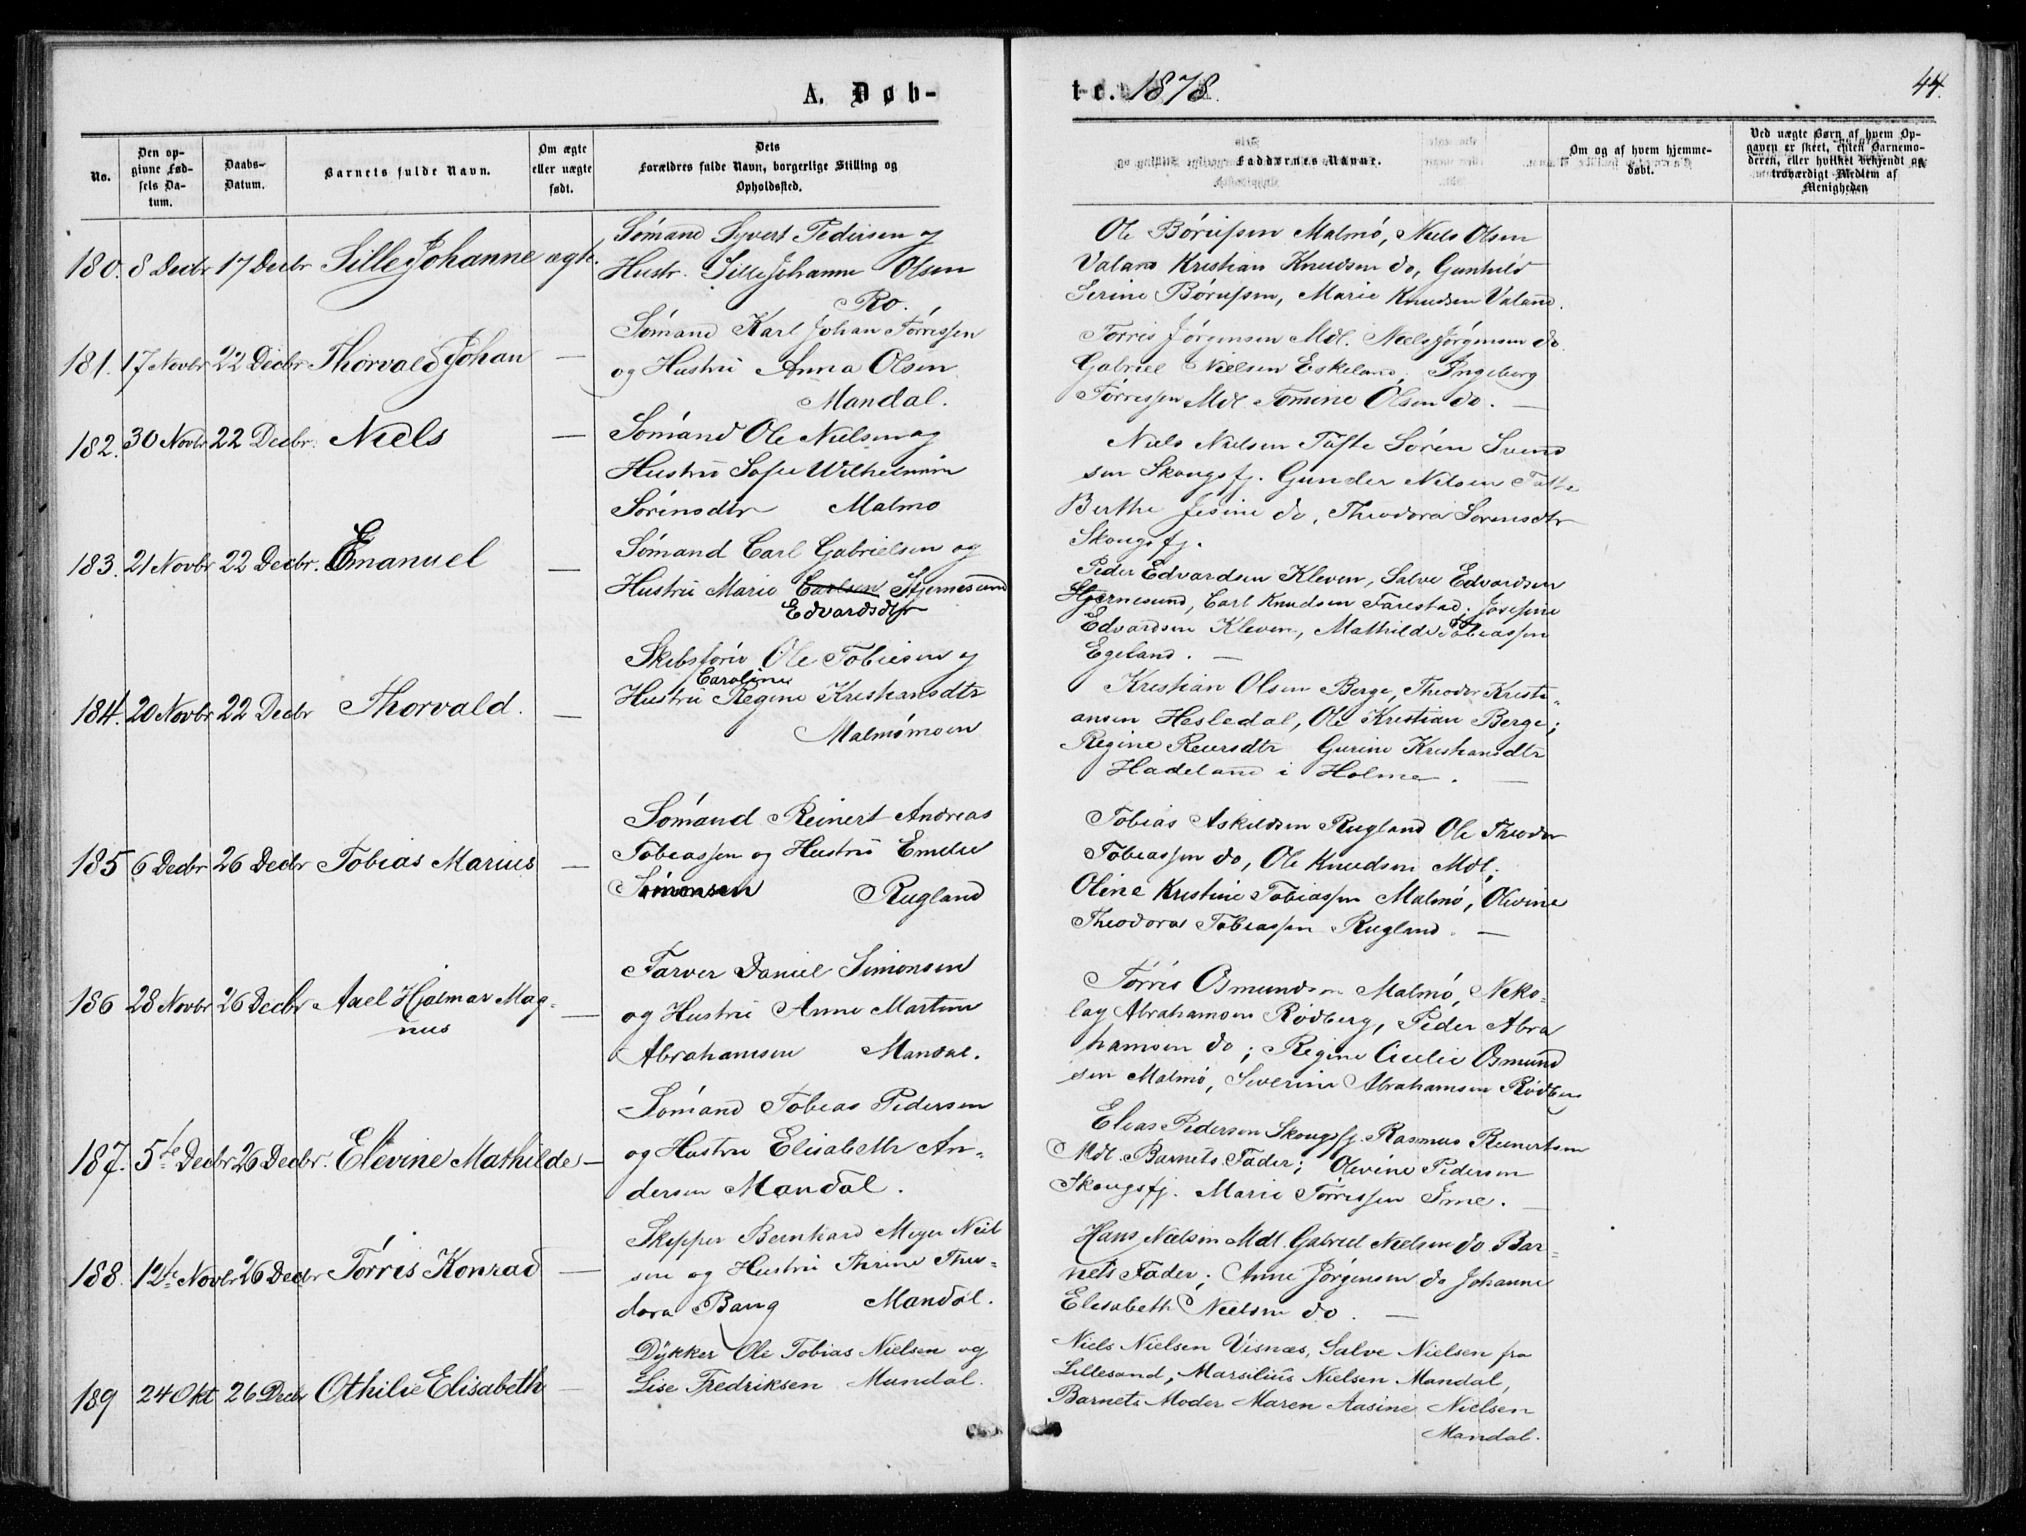 A. Døb-
te. 1878.
44.
No.
Den op-
givne Fød-
sels Da-
tum.
Daabs-
Datum.
Barnets fulde Navn.
Om ægte
eller uægte
født.
Dets
Forældres fulde Navn, borgerlige Stilling og
Opholdssted.
Faddernes Navne.
Om og af hvem hjemme-
døbt.
Ved uægte Børn af hvem Op-
gaven er skeet, enten Barnemo-
deren, eller hvilket bekjendt og
troværdigt Medlem af
Menigheden
180. 8 Decbr 17 Decbr Sille Johanne ægte.
Sømand Syvert Pedersen og
Hustr. Sille Johanne Olsen
Ro.
Ole Børufsen Malmø, Niels Olsen
Valand Kristian Knudsen do, Gunhild
Serine Børufsen, Marie Knudsen Valand.
181. 17 Novbr 22 Decbr Thorvald Johan —
Sømand Karl Johan Tørrissen
og Hustru Anna Olsen
Mandal.
Tørris Jørgensen Mdl. Niels Jørgensen do.
Gabriel Nielsen Eskeland, Ingeborg
Tørrissen Mdl Tomine Olsen do. —
182. 30 Novbr 22 Decbr. Niels —
Sømand Ole Nielsen og
Hustru Sofie Wilhelmine
Sørensdtr Malmø
Niels Nielsen Tofte Søren Svend
sen Skougsfj. Gunder Nilsen Tofte
Berthe Jesine do, Theodora Sørensdtr
Skougsfj.
183. 21 Novbr 22 Decbr. Emanuel —
Sømand Carl Gabrielsen og
Hustru Marie Carlsen Stjernesund
Edvardsdtr
Peder Edvardsen Kleven, Salve Edvardsen
Stjernesund, Carl Knudsen Farestad; Josefine
Edvardsen Kleven, Mathilde Tobiassen
Egeland. —
184. 20 Novbr 22 Decbr Thorvald. —
Skibsfører Ole Tobiesen og
Caroline
Hustru Regine Kristiansdtr
Malmømoen
Kristian Olsen Berge, Theodor Kristi-
ansen Hesledal, Ole Kristian Berge;
Regine Reiersdtr Gurine Kristiansdtr
Hadeland i Holme. —
185 6 Decbr 26 Decbr Tobias Marius —
Sømand Reinert Andreas
Tobiassen og Hustru Emelie
Simonsen Rugland
Tobias Askildsen Rugland Ole Theodor
Tobiassen do, Ole Knudsen Mdl;
Oline Kristine Tobiassen Malmø, Olevine
Theodora Tobiassen Rugland. —
186 28 Novbr 26 Decbr Axel Hjalmar Mag-
nus —
Farver Daniel Simonsen
og Hustru Anne Martine
Abrahamsen Mandal.
Tørris Osmundsen Malmø, Neko-
lay Abrahamsen Rødberg, Peder Abra
hamsen do; Regine Cicilie Osmund
sen Malmø, Severine Abrahamsen Rødberg
187. 5te Decbr 26 Decbr. Elevine Mathilde —
Sømand Tobias Pedersen
og Hustru Elisabeth An-
dersen Mandal.
Elias Pedersen Skougsfj. Rasmus Reinertsen
Mdl. Barnets Fader; Olevine Pedersen
Skougsfj. Marie Tørrissen Ime. —
188. 12te Novbr 26 Decbr Tørris Konrad —
Skipper Bernhard Meyer Niel
sen og Hustru Thrine Theo-
dora Bang Mandal.
Hans Nielsen Mdl. Gabriel Nielsen do Bar-
nets Fader; Anne Jørgensen do Johanne
Elisabeth Nielsen do. —
189 24 Okt 26 Decbr Othilie Elisabeth —
Dykker Ole Tobias Nielsen og
Lise Fredriksen Mandal.
Niels Nielsen Visnæs, Salve Nielsen fra
Lillesand, Marsilius Nielsen Mandal,
Barnets Moder Maren Aasine Nielsen
Mandal.